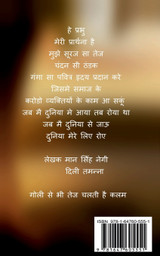 हे प्रभु
मेरी प्रार्थना है
मुझे सूरज सा तेज
चंदन सी ठंडक
गंगा सा पवित्र हृदय प्रदान करें
जिससे समाज के
करोडो व्यक्तियों के काम आ सकूं
जब मैं दुनिया में आया तब रोया था
जब मैं दुनिया से जाऊं
दुनिया मेरे लिए रोए
लेखक मान सिंह नेगी
दिली तमन्ना
गोली से भी तेज चलती है कलम